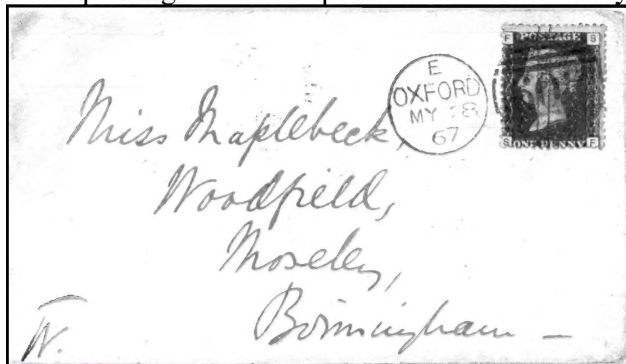 E
OXFORD
MY 28
67
F S
POSTAGE
S F
ONE PENNY
Miss Maplebeck,
Woodfield,
Moseley,
Birmingham –
W.